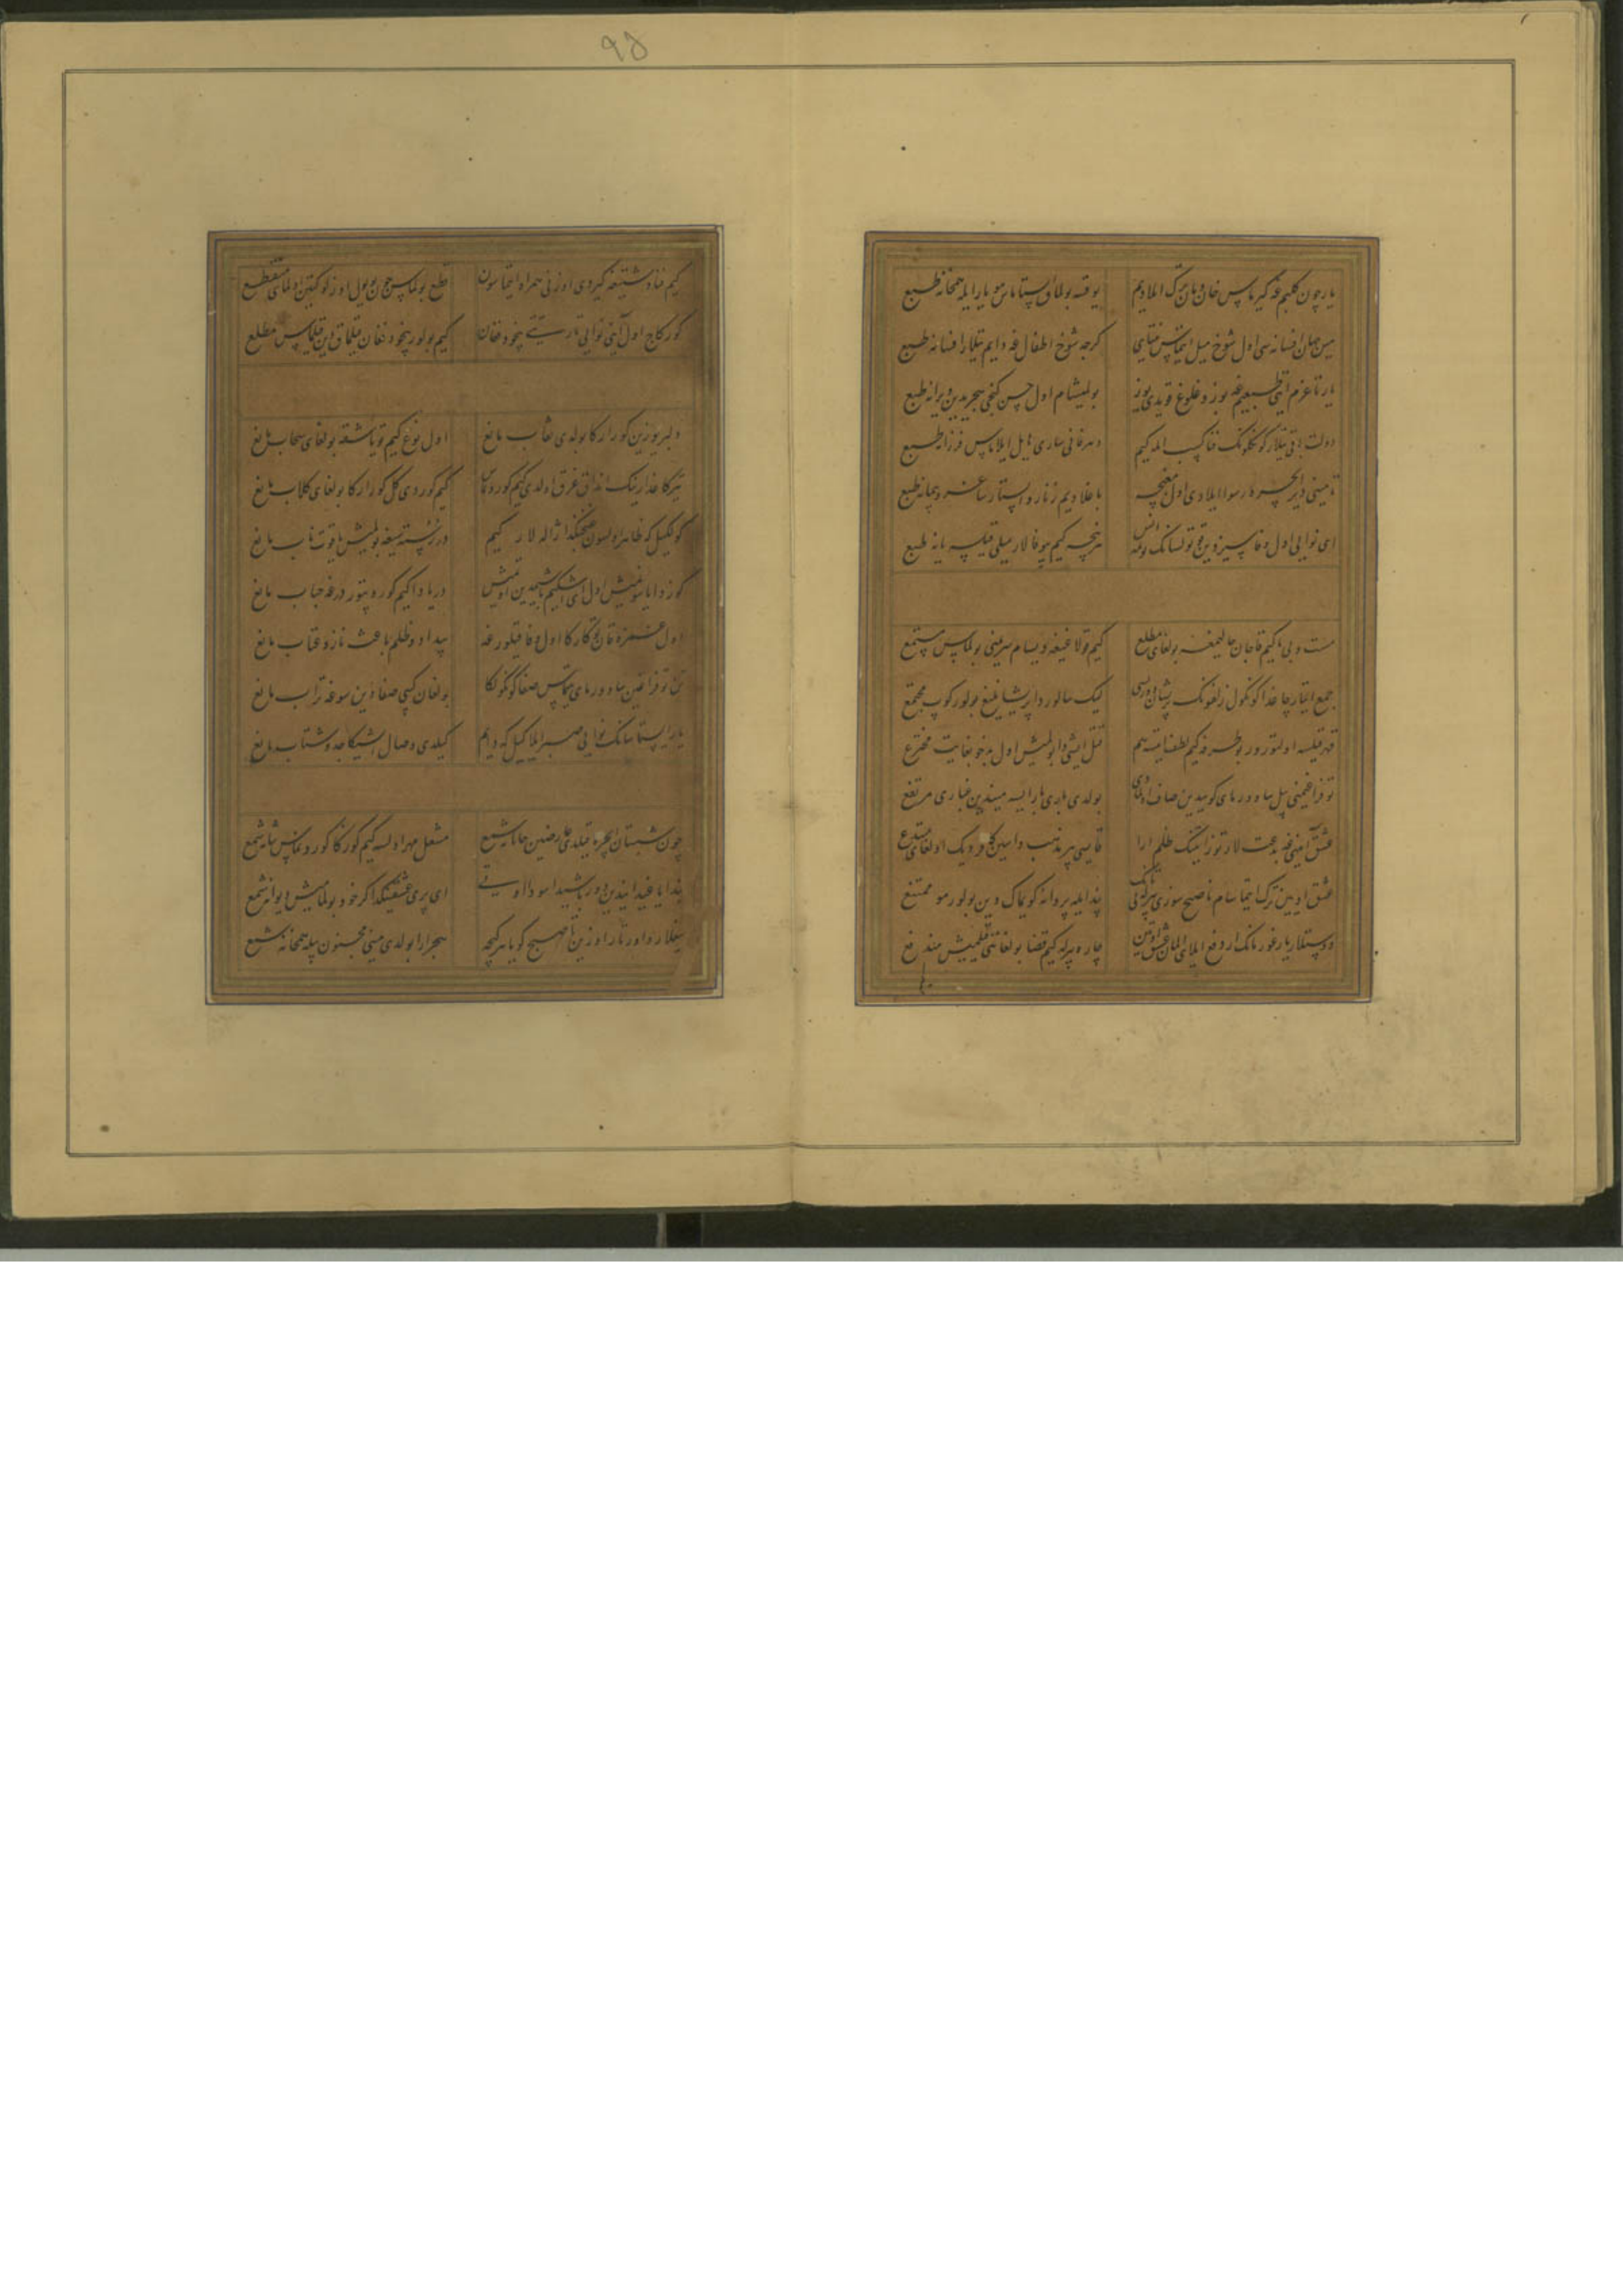 یار چون کلبم غه کیرماس خان و مان ترک ایلادیم
یوقسه بولماق ایستاماس مو یار ایله همخانه طبع
مین جهان افسانه سی اول شوخ میل ایتماس منکا
کرچه شوخ اطفال غه دایم تیلار افسانه طبع
یار تا عزم ایتی طبعیم غه بوزوغلوغ قویدی یوز
بولمیشام اول حسن کنجی هجریدین ویرانه طبع
دولت باقی تیلار کونکلونک فنا کسب ایله کیم
دهر فانی ساری مایل ایلاماس فرزانه طبع
تا مینی دیر ایچره رسوا ایلادی اول مغبچه
باغلادیم زنار و ایستار ساغر و پیمانه طبع
ای نوایی اول وفاسیزدین قوتولسانک انس
هر نیچه کیم بیوفالار میلی قیلسه یانه طبع
مست و بی باکیم قاچان حالیمغه بولغای مطلع
کیم قولاغیغه دیسام سرینی بولماس مستمع
جمع ایتار چاغدا کونکول زلفونک پریشان
لیک سالور دا پریشانلیغ بولور کوپ مجتمع
قهر قیلسه اولتورور بو طرفه کیم لطف ایتسه هم
قتل ایشی دا بولمیش اول بدخو بغایت مخترع
توفراغیمنی ییل ساوورمای کوییدین صاف اولمادی
بولدی باری بارا ایسه میندین غباری مرتفع
عشق آیینی غه بدعت لار توزاتینک ظلم ارا
قایسی بیر مذهب دا سین کافر دیک اولغای مبتدع
عشق اوتیدین ترک ایتماسام ناصح سوزی بیرله نی تانک
پند ایله پروانه کویماک دین بولور مو ممتنع
دوستلار یارغورمانک ار دفع ایلای المان عشق اوتین
چاره بیرله کیم قضا بولغانی قیلمیش مندفع
کیم فنا دشتیغه کیردی اوزنی همراه ایتماسون
قطع بولماس چون بو یول اوزلوکتین اولمای منقطع
کورکاچ اول آینی نوایی تارتتی بیخود فغان
کیم بولور بیخود فغان قیلماق دین قیلماس مطلع
دلبر یوزین کورارکا بولدی نقاب مانع
اول نوع کیم قویاشقه بولغای سحاب مانع
تیرکا عذارینک انداق غرق اولدی کیم کورونماس
کیم کوردی کل کورارکا بولغای کلاب مانع
کولکیل که ظاهر اولسون غنچنکدا ژاله لار کیم
در رشته سیغه بولمیش یاقوت ناب مانع
دریادا کیم کوروبتور درغه حباب مانع
اول غمزه قانی تکارکا اول وفا قیلورغه
بیداد و ظلم باعث ناز و عتاب مانع
تن توفراغین ساوورمای تاپماس صفا کونکولکا
بولغان کیبی صفادین سوغه تراب مانع
یار ایستاسانک نوایی صبر ایلاکیل که دایم
کیلدی وصال ایشیکا جد و شتاب مانع
چون شبستان ایچره قیلدی عارضین جانانه شمع
مشعل مهر اولسه کیم کورکا کورونماس یانه شمع
ای پری عشقینکدا کر خود بولمامیش دیوانه شمع
ییغلار و اورتار اوزین تا صبح کویا هر کیچه
هجر ارا بولدی مینی مجنون بیله همخانه شمع